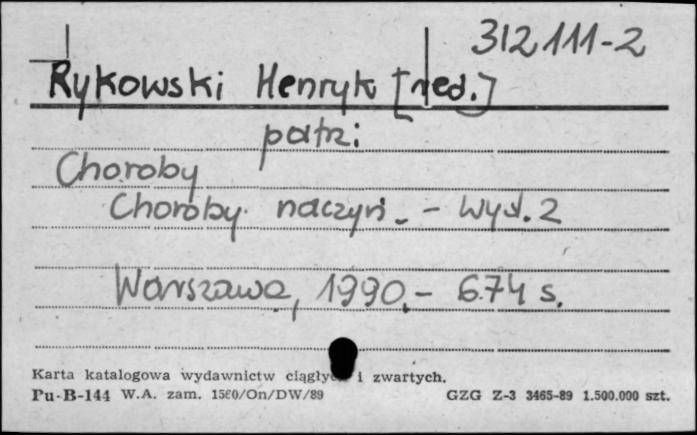 312111-2
Rykowski Henryk [red.]
patrz:
Choroby
Choroby naczyń. - Wyd. 2
Warszawa, 1990.- 674 s.
Karta katalogowa wydawnictw ciągłych i zwartych.
Pu-B-144 W.A. zam. 1560/On/DW/89 GZG Z-3 3465-89 1.500.000 szt.